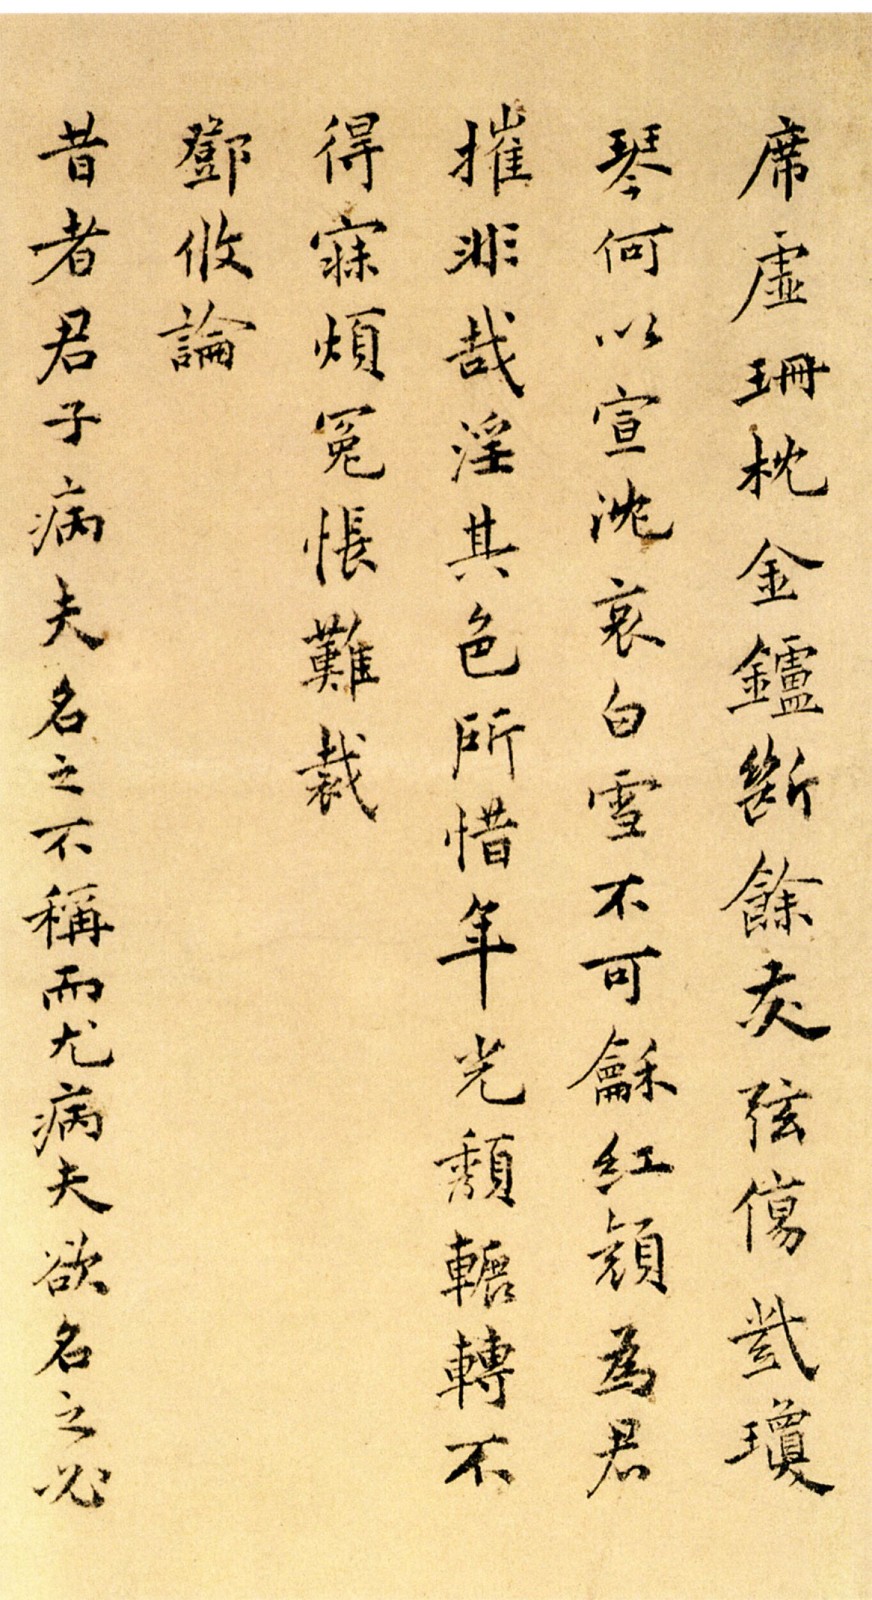 席虛珊枕金鑪斷餘灰弦傷戣瓊
琴何以宣沈哀白雪不可龢紅顏為君
摧非哉淫其色所惜年光頹轆轉不
得寐煩冤悵難裁
鄧攸論
昔者君子病夫名之不稱而尤病夫欲名之必